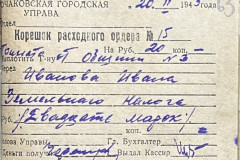 ОЧАКОВСКАЯ ГОРОДСКАЯ
УПРАВА
20. II 1943
63
Корешок расходного ордера № 15
На Руб. 20 коп.
Общины № 3
Через
Иванова Ивана
Земельного налога
/Двадцать марок/
Управы Гл. Бухгалтер
Деньги получил Выдал Кассир